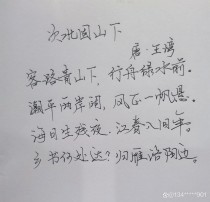 次北固山下
唐·王湾
客路青山下，行舟绿水前。
潮平两岸阔，风正一帆悬。
海日生残夜，江春入旧年。
乡书何处达？归雁洛阳边。